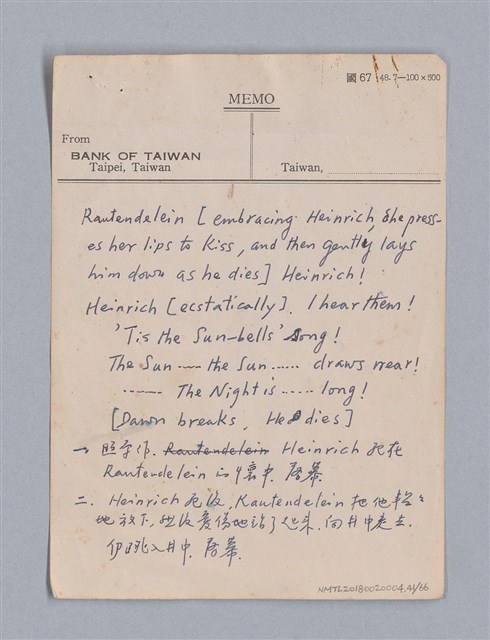 國 67 48. 7—100×500
MEMO
From
BANK OF TAIWAN
Taipei, Taiwan
Taiwan,
Rautendelein [embracing Heinrich, She press-
es her lips to Kiss, and then gently lays
him down as he dies] Heinrich!
Heinrich [ecstatically]. I hear them!
'Tis the Sun-bells' Song!
The Sun — the Sun ...... draws near!
—— The Night is ..... long!
[Dawn breaks, He dies]
一 照原作. Rautendelein Heinrich 死在
Rautendelein 的懷中. 啓幕.
二. Heinrich 死後, Rautendelein 把他輕輕
地放下, 然後哀傷地站了起來. 向井中走去.
跳入井中. 啓幕.
NMTL20180020004.41/66